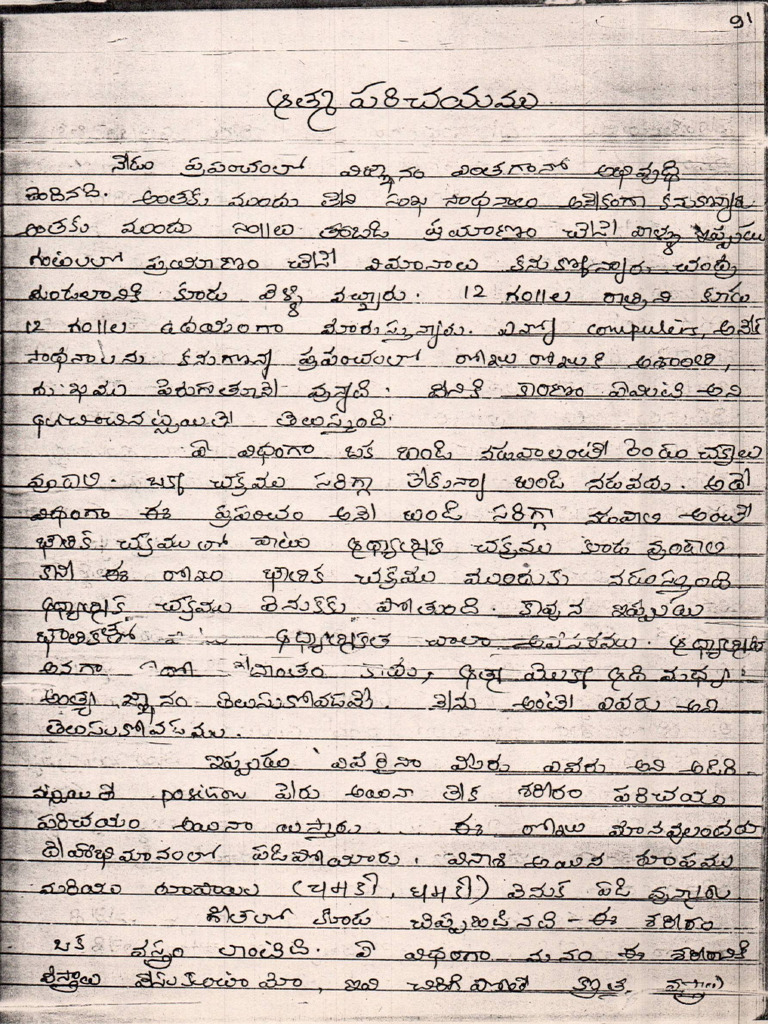 91
ఆత్మ పరిచయము
నేడు ప్రపంచంలో విజ్ఞానం ఎంతగానో అభివృద్ధి
చెందినది. అంతకు ముందు లేని సుఖ సాధనాలు అనేకంగా కనుకొన్నారు
అంతకు ముందు నెలలు తరబడి ప్రయాణం చేసే వాళ్ళు ఇప్పుడు
గంటలలో ప్రయాణం చేసే విమానాలు కనుక్కొన్నారు చంద్ర
మండలానికి కూడా వెళ్ళి వచ్చారు. 12 గం॥ల రాత్రిని కూడా
12 గం॥ల ఉదయంగా మారుస్తున్నారు. ఎన్నో computers, అనేక
సాధనాలను కనుగొన్నా ప్రపంచంలో రోజు రోజుకి అశాంతి,
దుఃఖము పెరుగుతూనే వున్నాది. దీనికి కారణం ఏమిటి అని
ఆలోచించినట్లయితే తెలుస్తుంది.
ఏ విధంగా ఒక బండి నడవాలంటే రెండు చక్రాలు
వుండాలి. ఒక్క చక్రము సరిగ్గా లేకున్నా బండి నడవదు. అదే
విధంగా ఈ ప్రపంచం అనే బండి సరిగ్గా నడవాలి అంటే
భౌతిక చక్రముతో పాటు ఆధ్యాత్మిక చక్రము కూడా వుండాలి
కానీ ఈ రోజు భౌతిక చక్రము ముందుకు నడుస్తుంది
ఆధ్యాత్మిక చక్రము వెనుకకు పోతుంది. కావున ఇప్పుడు
భౌతికతతో ఆధ్యాత్మికత చాలా అవసరము. ఆధ్యాత్మికత
అనగా కాదు, ఆత్మ యొక్క ఆది మధ్య
అంత్య జ్ఞానం తెలుసుకోవడమే. నేను అంటే ఎవరు అని
తెలుసుకోవడము.
ఇప్పుడు ఎవరినైనా మీరు ఎవరు అని అడిగి
నట్లయితే position పేరు అయినా లేక శరీరం పరిచయం
పరిచయం అయినా ఇస్తారు. ఈ రోజు మానవులందరు
దేహాభిమానంలో పడిపోయారు. వినాశి అయిన రూపము
మరియు రూపాయల (चमकी, धमकी) వెనుక పడి వున్నారు
గీతలో కూడా చెప్పబడినది - ఈ శరీరం
ఒక వస్త్రం లాంటిది. ఏ విధంగా మనం ఈ శరీరానికి
వస్త్రాలు వేసుకుంటామో, ఇవి చిరిగిపోతే క్రొత్త వస్త్రాలు